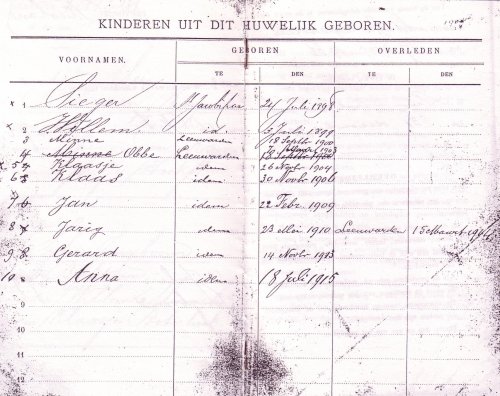 KINDEREN UIT DIT HUWELIJK GEBOREN.
VOORNAMEN. GEBOREN OVERLEDEN
TE DEN TE DEN
x 1 Sieger St Jacobiparochie 24 Juli 1898
2 Willem id. 5 Juli 1899
3 Minne Leeuwarden 18 Septbr 1900
4 Obbe Leeuwarden 1903
x 5 Klaaske idem 26 Novbr 1904
x 6 Klaas idem 30 Novbr 1906
7 Jan idem 22 Febr. 1909
8 Jarig idem 23 Mei 1910 Leeuwarden 15 Maart
9 8 Gerard idem 14 Novbr 1913
10 Anna idem 18 Juli 1915
11
12